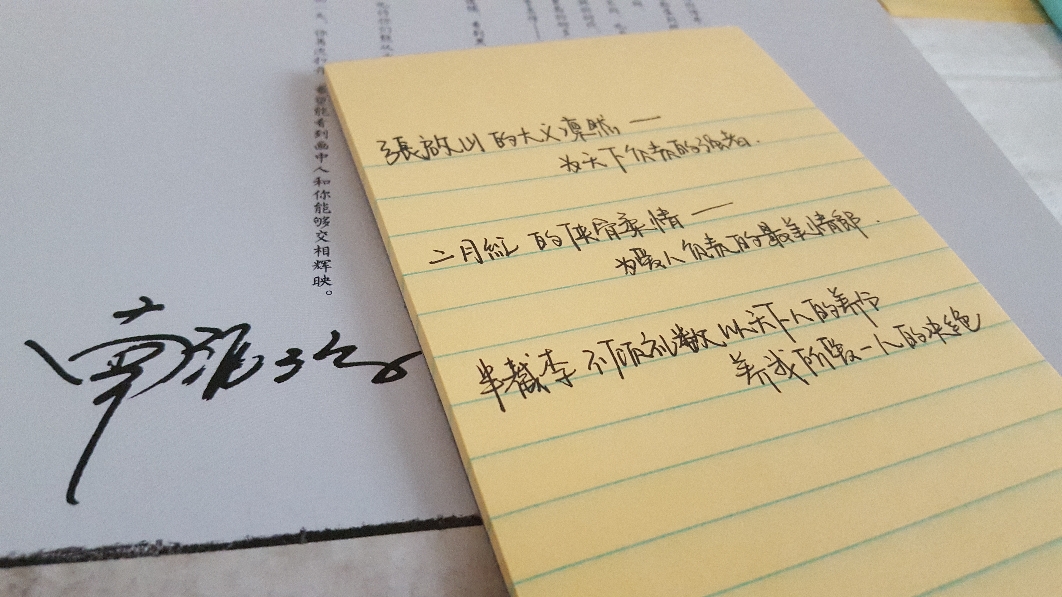 張啟山的大义凛然——
为天下负责的强者.
二月紅的侠骨柔情——
为爱人负责的最美情郎.
半截李不顾礼数以天下人的养分
养我所爱一人的决绝
希望能看到画中人和你能够交相辉映。
南派三叔